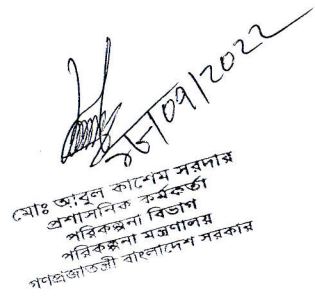 /09/2022
মোঃ আবুল কাশেম সরদার
প্রশাসনিক কর্মকর্তা
পরিকল্পনা বিভাগ
পরিকল্পনা মন্ত্রণালয়
গণপ্রজাতন্ত্রী বাংলাদেশ সরকার